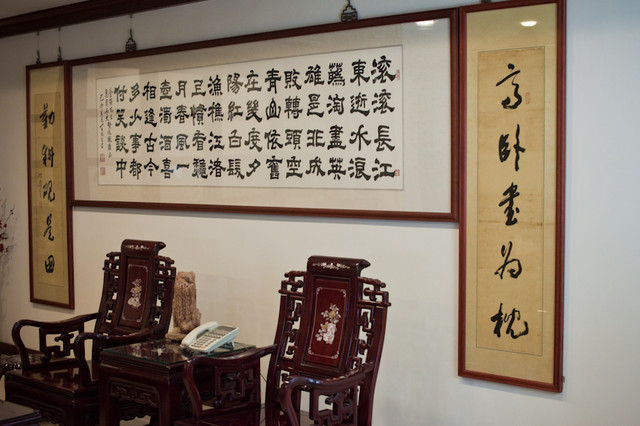 高卧書為枕
滾滾長江
東逝水浪
蘤淘盡英
雄是非成
敗轉頭空
青山依舊
在幾度夕
陽紅白髮
漁樵江渚
上慣看龝
月春風一
壺濁酒喜
相逢古今
多少事都
付笑談中
勤耕硯是田